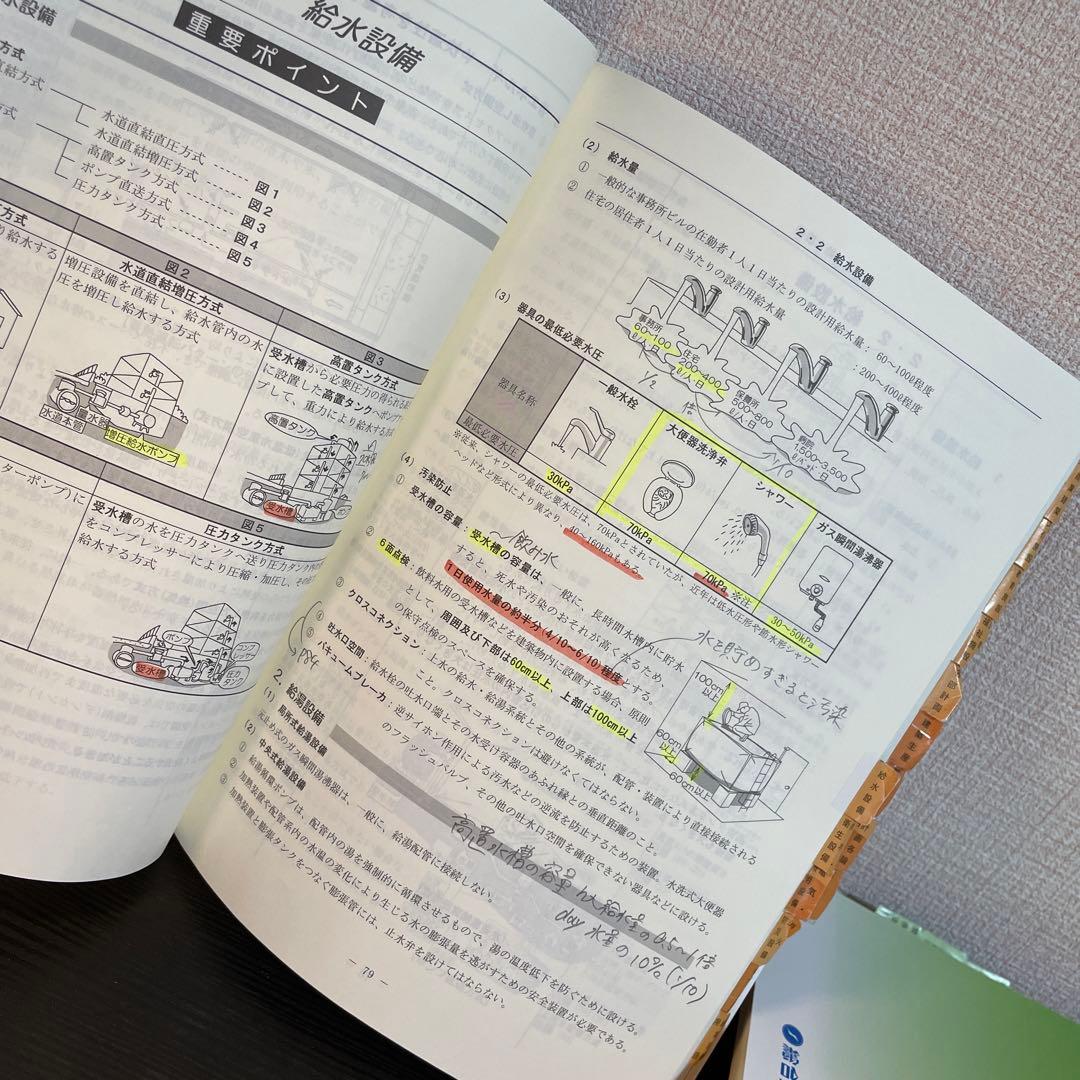 水設備
給水設備
重要ポイント
方式
直結方式
方式
水道直結直圧方式 …… 図1
水道直結増圧方式 …… 図2
高置タンク方式 …… 図3
ポンプ直送方式 …… 図4
圧力タンク方式 …… 図5
図2
水道直結増圧方式
増圧設備を直結し、給水管内の水
圧を増圧し給水する方式
量水器
水道本管
増圧給水ポンプ
図3
高置タンク方式
受水槽から必要圧力の得られる
に設置した高置タンクへポンプ
プして、重力により給水する方式
高置タンク
受水槽
ターポンプ)に
図5
圧力タンク方式
受水槽の水を圧力タンクへ送り圧力タンク内
をコンプレッサーにより圧縮・加圧し、その圧
給水する方式
ポンプ
コンプレッサー
受水槽
圧力タンク
2・2 給水設備
(2) 給水量
① 一般的な事務所ビルの在勤者1人1日当たりの設計用給水量：60~100ℓ程度
② 住宅の居住者1人1日当たりの設計用給水量：200~400ℓ程度
事務所
60~100
ℓ/人·日
住宅
200~400
ℓ/人·日
保養所
500~800
ℓ/人·日
病院
1,500~3,500
ℓ/ベッド·日
1/2
倍
1/10
(3) 器具の最低必要水圧
器具名称
一般水栓
大便器洗浄弁
シャワー
ガス瞬間湯沸器
最低必要水圧
30kPa
70kPa
70kPa ※注
30~50kPa
※従来、シャワーの最低必要水圧は、70kPaとされていたが、近年は低水圧形や節水形シャワー
ヘッドなど形式により異なり、40~160kPaもある。
(4) 汚染防止
飲料水
① 受水槽の容量：受水槽の容量は、一般に、長時間水槽内に貯水
すると、死水や汚染のおそれが高くなるため、
1日使用水量の約半分(4/10~6/10)程度とする。
水を貯めすぎると汚染
② 6面点検：飲料水用の受水槽などを建築物内に設置する場合、原則
として、周囲及び下部は60cm以上、上部は100cm以上
の保守点検のスペースを確保する。
100cm
以上
60cm
以上
60cm以上
③ クロスコネクション：上水の給水・給湯系統とその他の系統が、配管・装置により直接接続される
こと。クロスコネクションは避けなくてはならない。
④ 吐水口空間：給水栓の吐水口端とその水受け容器のあふれ縁との垂直距離のこと。
⑤ バキュームブレーカ：逆サイホン作用による汚水などの逆流を防止するための装置。水洗式大便器
のフラッシュバルブ、その他の吐水口空間を確保できない器具などに設ける。
2. 給湯設備
高置水槽の容量 h人給水量の0.5~1倍
day水量の10%(1/10)
(1) 局所式給湯設備
元止め式のガス瞬間湯沸器は、一般に、給湯配管に接続しない。
(2) 中央式給湯設備
① 給湯循環ポンプは、配管内の湯を強制的に循環させるもので、湯の温度低下を防ぐために設ける。
② 加熱装置や配管系内の水温の変化により生じる水の膨張量を逃がすための安全装置が必要である。
③ 加熱装置と膨張タンクをつなぐ膨張管には、止水弁を設けてはならない。
- 79 -
計画
建築生産
給水設備